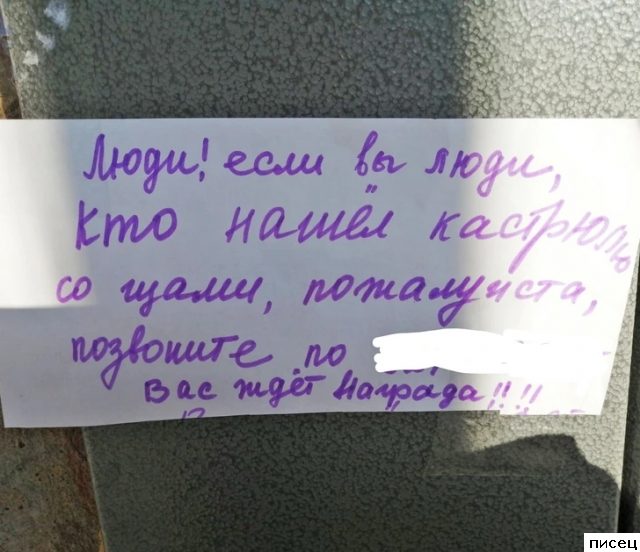 Люди! если вы люди,
кто нашёл кастрюлю
со щами, пожалуйста,
позвоните по
Вас ждёт Награда!!!!
писец